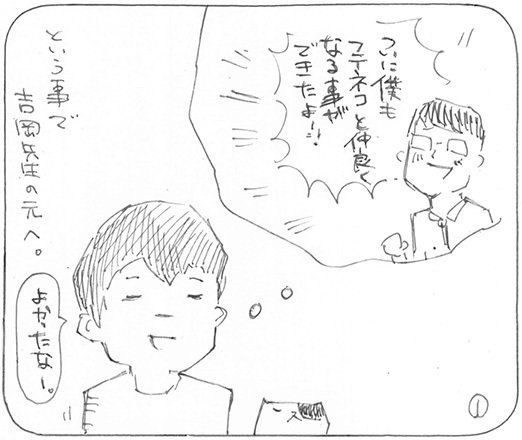 ついに僕も
フデネコと仲良く
なる事が
できたよー!!
という事で
吉岡先生の元へ。
よかったなー。
①